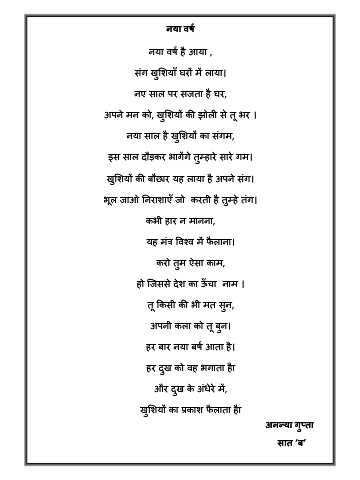 नया वर्ष
नया वर्ष है आया ,
संग खुशियाँ घरों में लाया।
नए साल पर सजता है घर,
अपने मन को, खुशियों की झोली से तू भर ।
नया साल है खुशियों का संगम,
इस साल दौड़कर भागेंगे तुम्हारे सारे गम।
खुशियों की बौछार यह लाया है अपने संग।
भूल जाओ निराशाएँ जो करती है तुम्हे तंग।
कभी हार न मानना,
यह मंत्र विश्व में फैलाना।
करो तुम ऐसा काम,
हो जिससे देश का ऊँचा नाम ।
तू किसी की भी मत सुन,
अपनी कला को तू बुन।
हर बार नया बर्ष आता है।
हर दुख को वह भगाता है।
और दुख के अंधेरे में,
खुशियों का प्रकाश फैलाता है।
अनन्या गुप्ता
सात ‘ब’